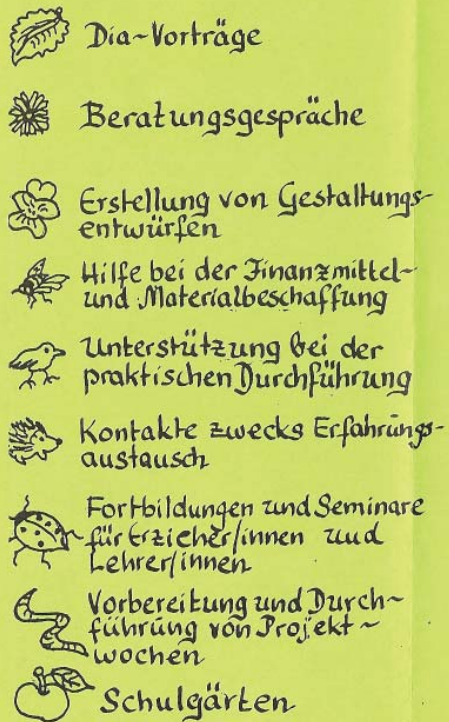 Dia~Vorträge
Beratungsgespräche
Erstellung von Gestaltungs-
entwürfen
Hilfe bei der Finanzmittel-
und Materialbeschaffung
Unterstützung bei der
praktischen Durchführung
Kontakte zwecks Erfahrungs-
austausch
Fortbildungen und Seminare
für Erzieher/innen und
Lehrer/innen
Vorbereitung und Durch~
führung von Projekt~
wochen
Schulgärten